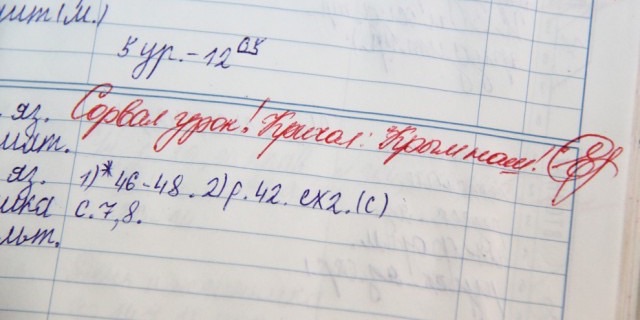 ит(м.)
5 ур. - 12 05
яз. Сорвал урок! Кричал: Крым наш!
мат.
яз. 1)*46-48. 2) р. 42. ex2. (с)
ика с. 7, 8.
льт.